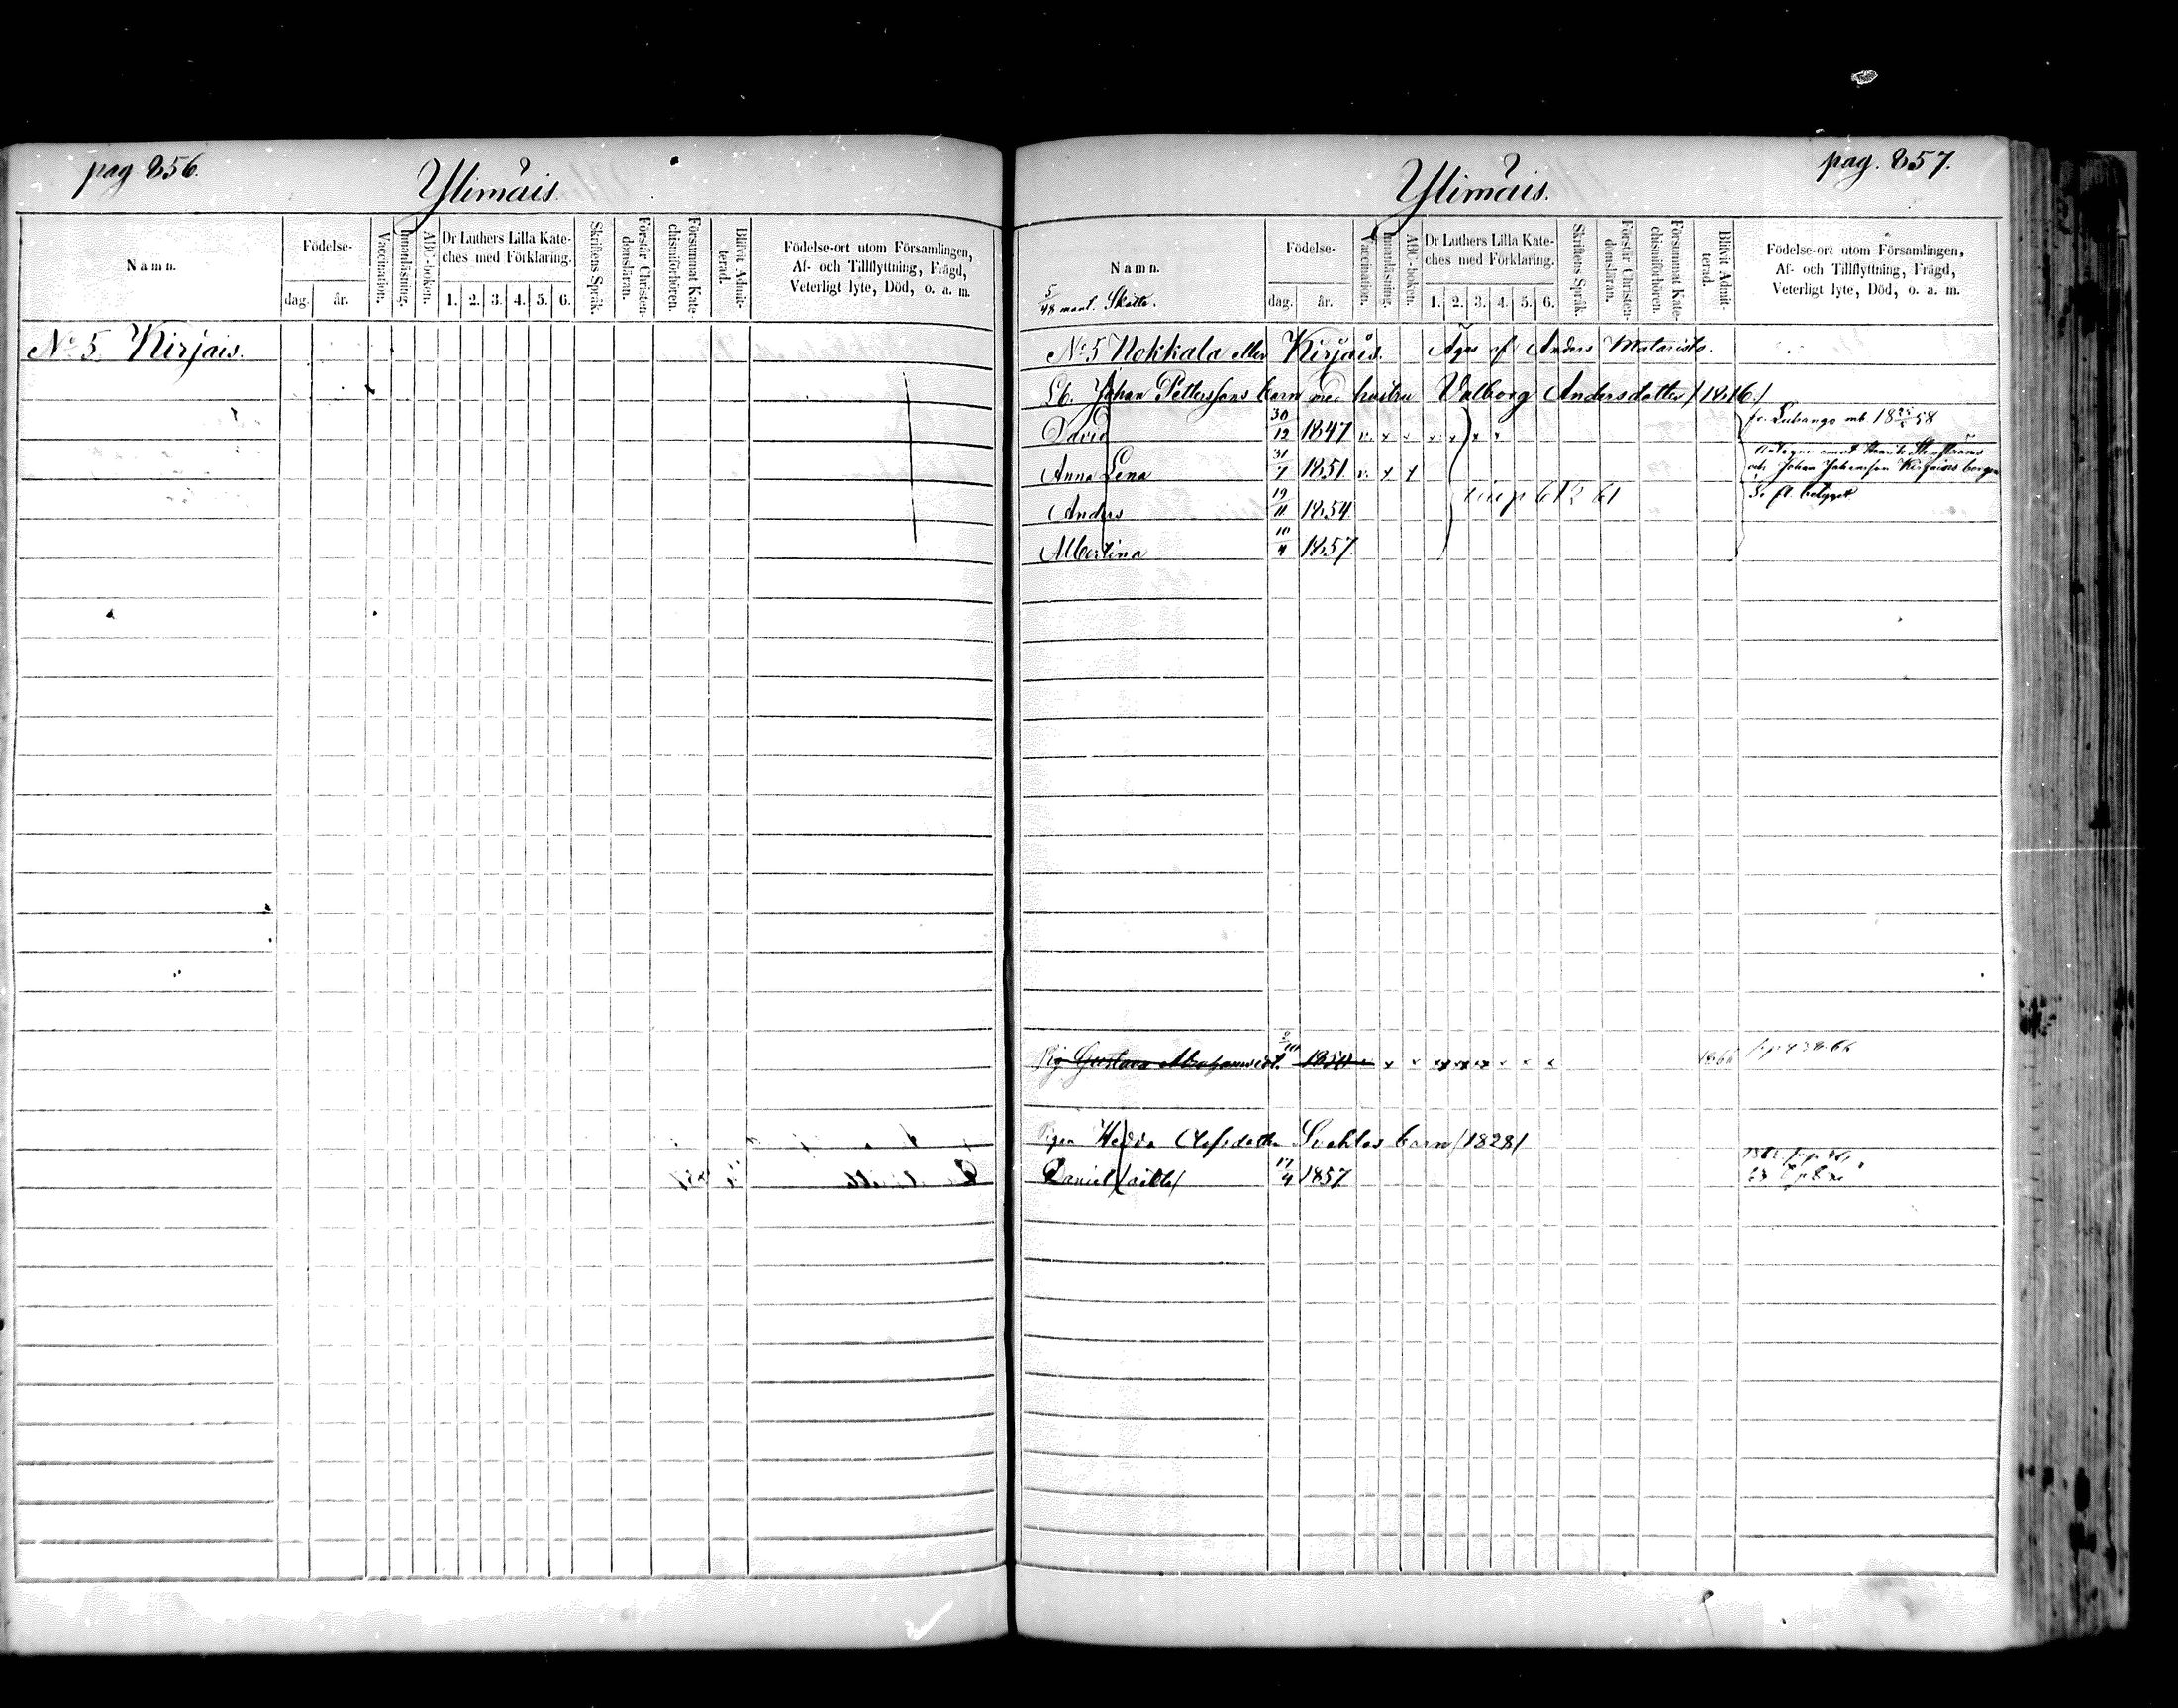 pag 856.
Ylimäis.
Namn.
Födelse-
dag.
år.
Vaccination.
Innanläsning.
ABC-boken.
Dr Luthers Lilla Kate-
ches med Förklaring.
1. 2. 3. 4. 5. 6.
Skriftens Språk.
Förstår Christen-
domsläran.
Försummat Kate-
chismiförhören.
Blifvit Admit-
terad.
Födelse-ort utom Församlingen,
Af- och Tillflyttning, Frägd,
Veterligt lyte, Död, o. a. m.
No 5. Kirjais.
pag. 857.
Ylimäis.
Namn.
5/48 mant. Skatte.
Födelse-
dag.
år.
Vaccination.
Innanläsning.
ABC-boken.
Dr Luthers Lilla Kate-
ches med Förklaring.
1. 2. 3. 4. 5. 6.
Skriftens Språk.
Förstår Christen-
domsläran.
Försummat Kate-
chismiförhören.
Blifvit Admit-
terad.
Födelse-ort utom Församlingen,
Af- och Tillflyttning, Frägd,
Veterligt lyte, Död, o. a. m.
No 5 Nokkala eller Kirjais. Äges af Anders
Johan Petterssons barn med hustru Valborg Andersdotter /1816/
David 30/12 1847 v. x
Anna Lena 31/7 1851 v. x x
Anders 19/11 1854
Albertina 10/4 1857
Pig. Gustava 1850 1866
Pigan Hedda barn /1828/
Daniel /oäkta/ 17/4 1857